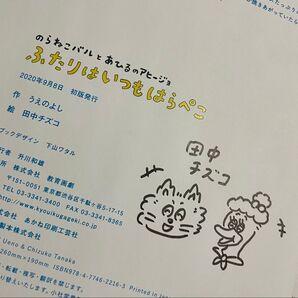 のらねこバルとあひるのアヒージョ
ふたりはいつもはらぺこ
2020年9月8日 初版発行
作 うえのよし
絵 田中チズコ
ブックデザイン 下山ワタル
行者 升川和雄
所 株式会社 教育画劇
〒151-0051 東京都渋谷区千駄ヶ谷5-17-15
TEL 03-3341-3400
FAX 03-3341-8365
http://www.kyouikugageki.co.jp
株式会社 あかね印刷工芸社
製本株式会社
Ueno & Chizuko Tanaka
260mm×190mm ISBN978-4-7746-2216-3 Printed in
・転載・複写・翻訳を禁じま
田中
チズコ